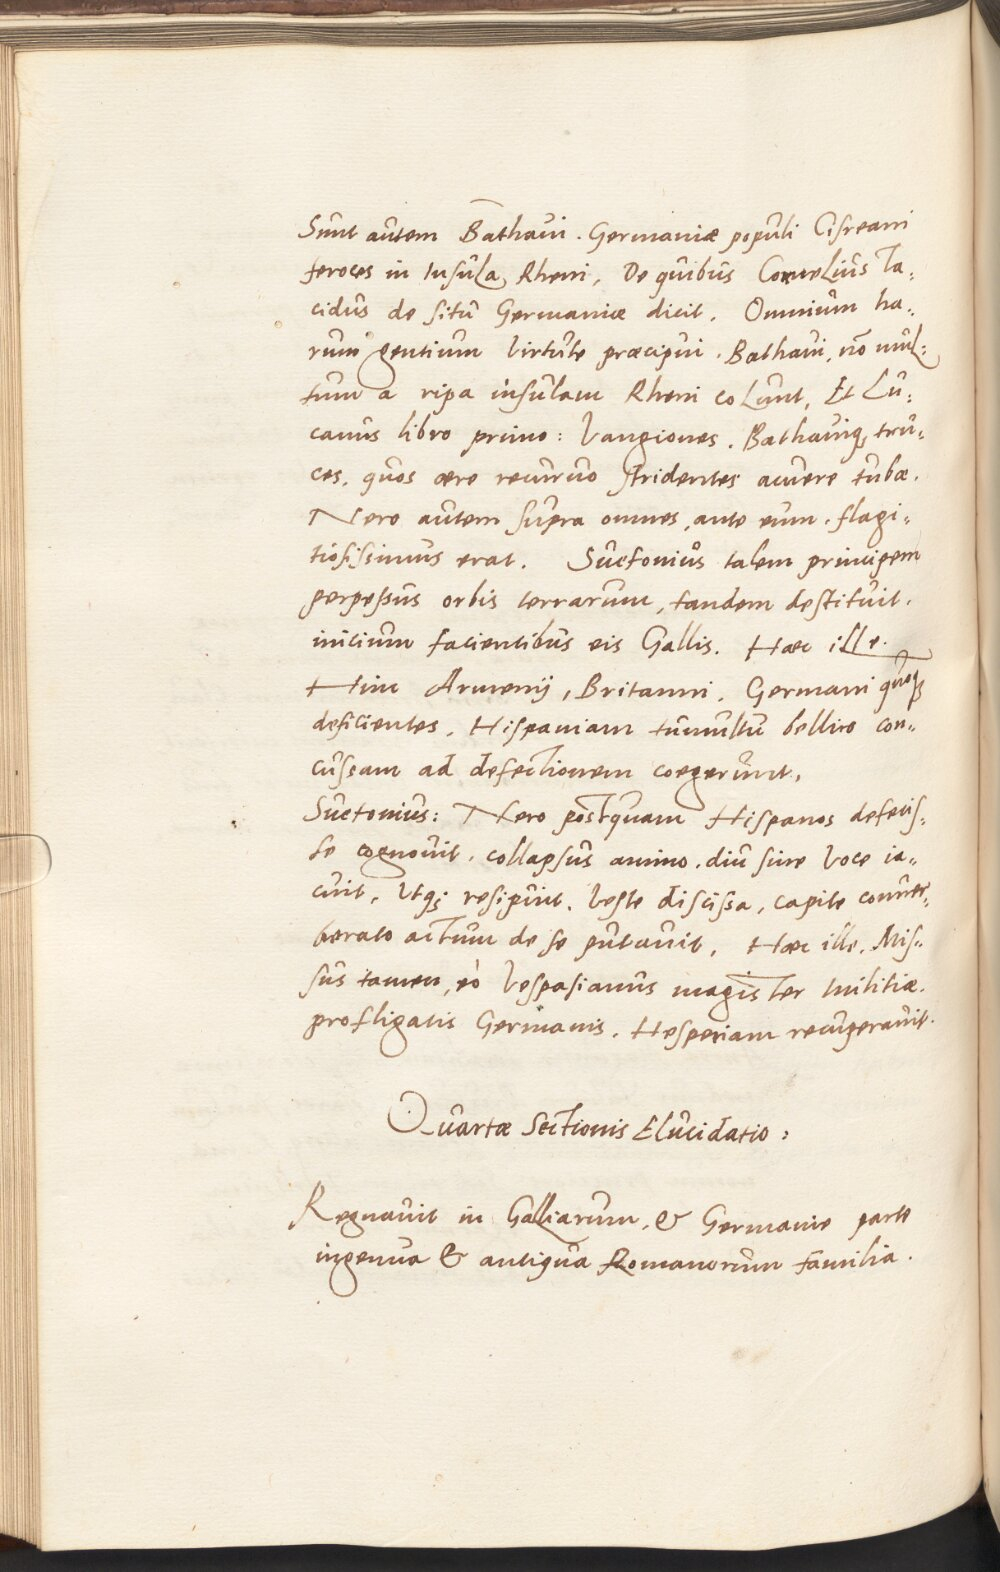 Sunt autem Bathavi. Germaniæ populi Cisreani
feroces in Insula Rheni, De quibus Cornelius Ta,
cidus de situ Germaniæ dicit. Omnium ha,
rum gentium virtute præcipui. Bathavi, nō mul,
tum a ripa insulam Rheni colunt, Et Lu,
canus libro primo: Vangiones. Bathaviq, tru,
ces. quos ære recurvo stridentes acuere tubæ.
Nero autem supra omnes, ante eum. flagi,
tiosissimus erat. Suetonius talem principem
perpessus orbis terrarum, tandem destituit.
inicium facientibus eis Gallis. Hæc ille.
Hinc Armenij, Britanni. Germani quoq
deficientes. Hispaniam tumultu bellico con,
cussam ad defectionem coegerunt.
Suetonius: Nero postquam Hispanos defecis,
se cognovit. collapsus animo. diu sine voce ia,
cuit, Utq; resipuit. veste discissa, capite conver,
berato actum de se putavit, Hæc ille. Mis,
sus tamen, eò Vespasianus magister militiæ.
profligatis Germanis. Hesperiam recuperavit.
Quartæ Sectionis Elucidatio:
Regnavit in Galliarum, & Germanie parte
ingenua & antiqua Romanorum familia.